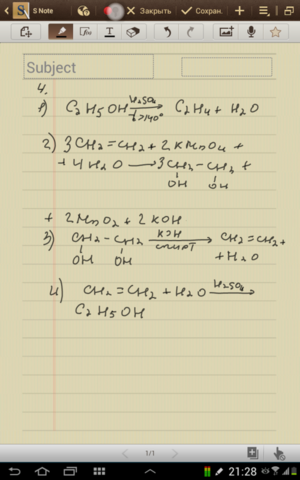 S Note
Закрыть
Сохран.
Subject
4.
1) C2H5OH H2SO4 t>140° C2H4 + H2O
2) 3CH2=CH2 + 2KMnO4 +
+ 4H2O → 3CH2-CH2 +
OH OH
+ 2MnO2 + 2KOH
3) CH2-CH2 КОН спирт → CH2=CH2 +
OH OH + H2O
4) CH2=CH2 + H2O H2SO4 →
C2H5OH
1/1
21:28